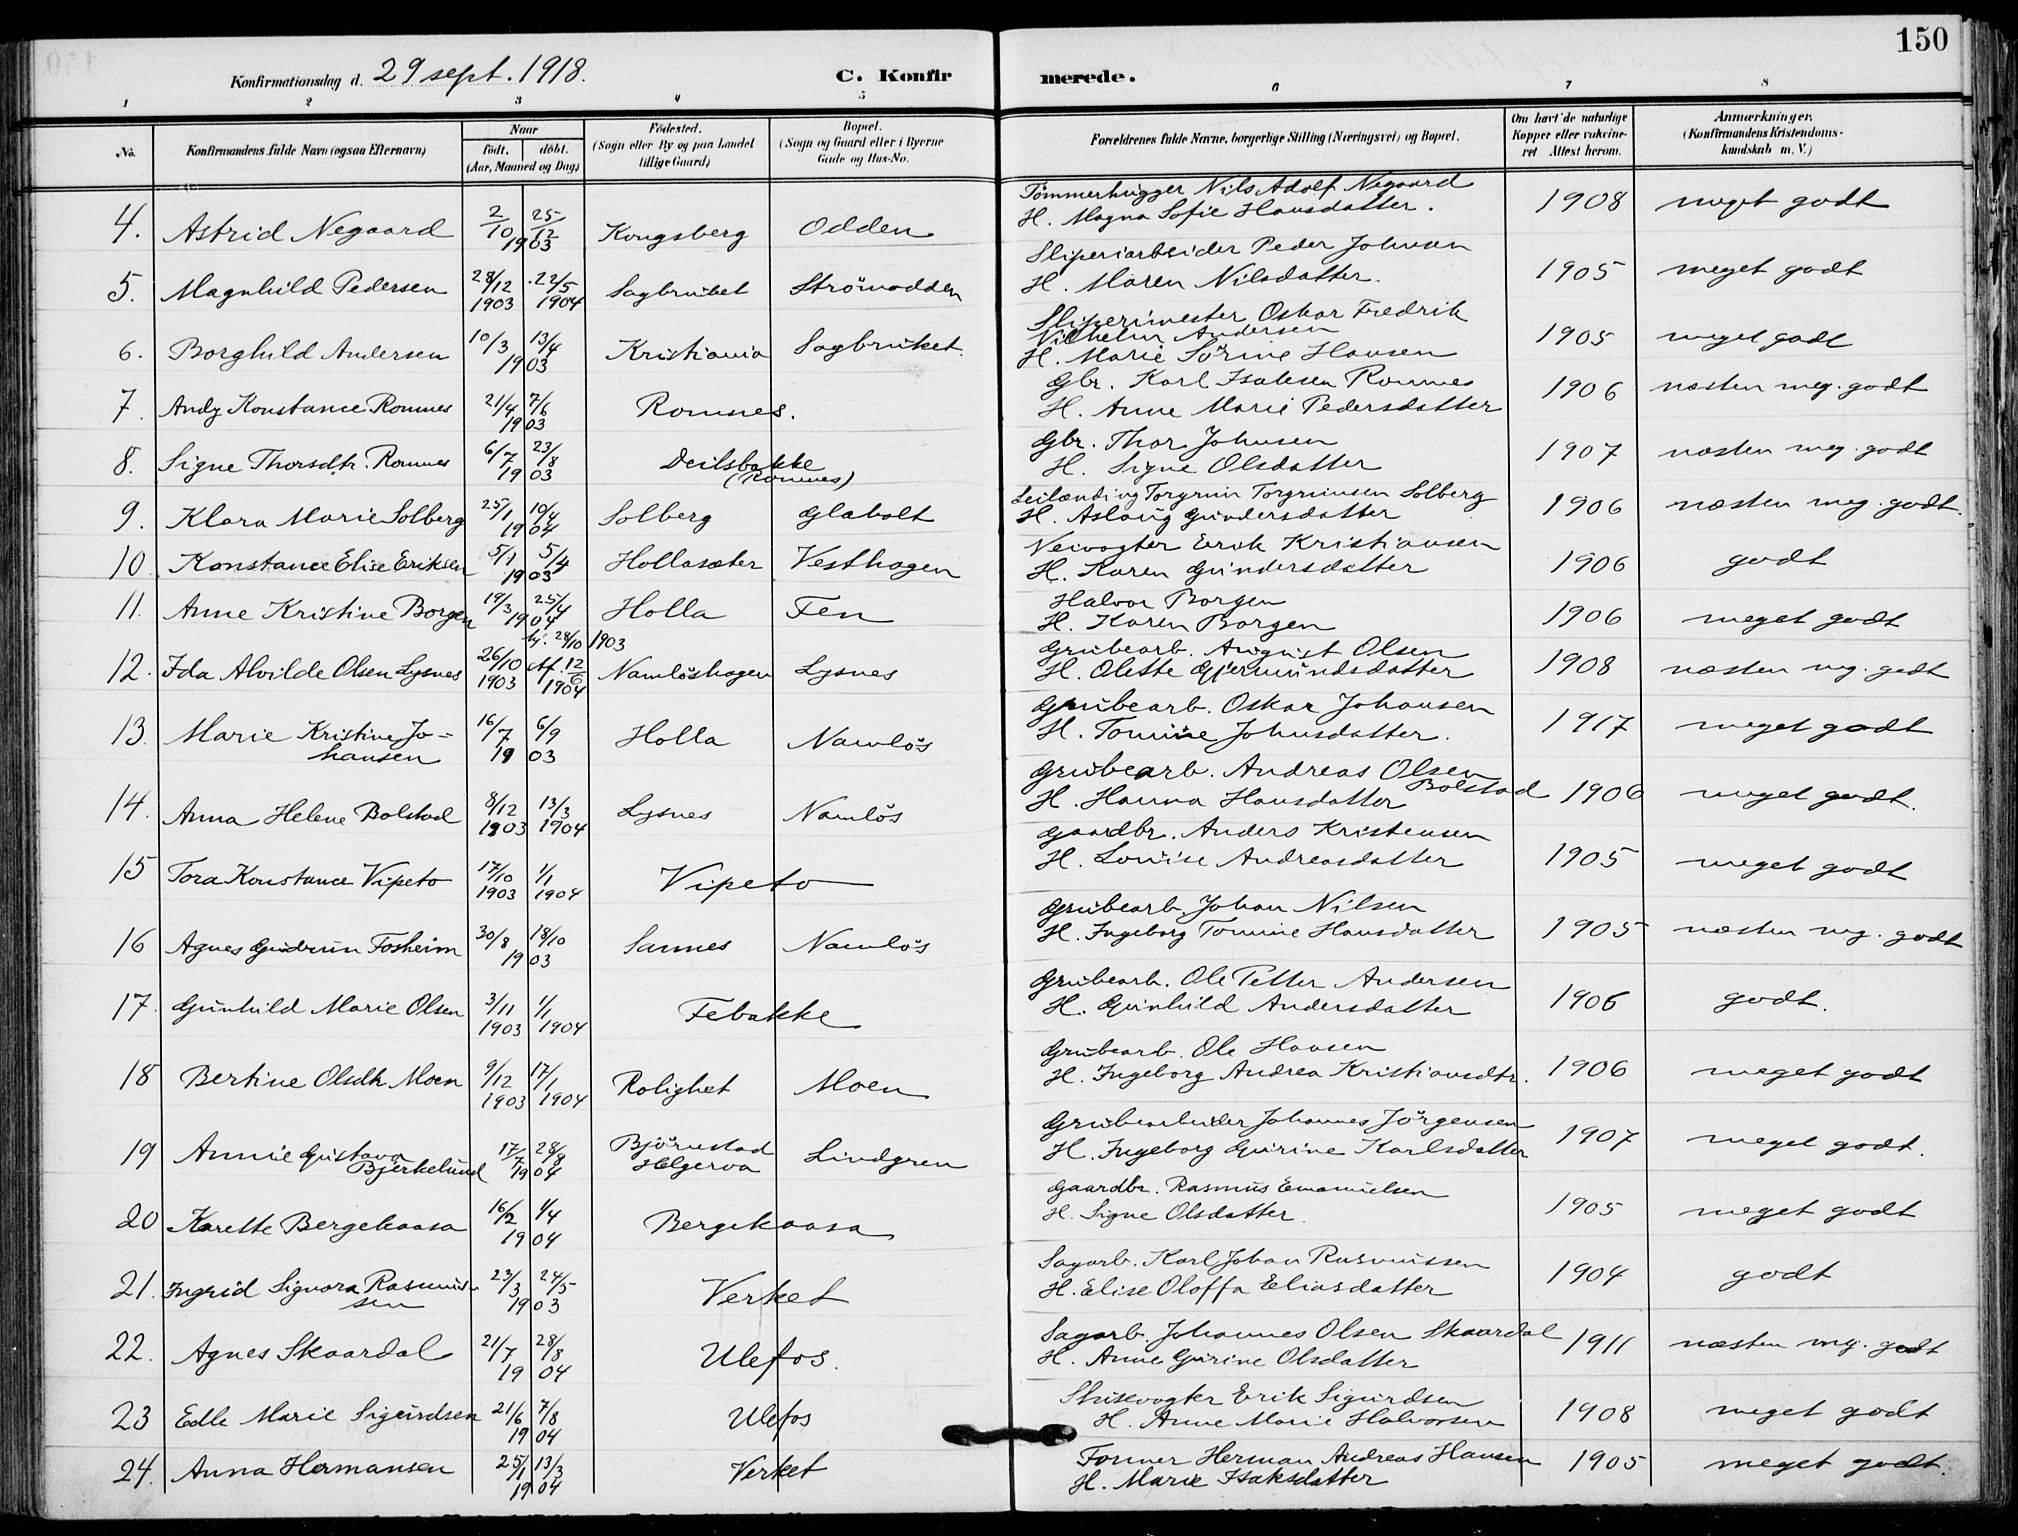 150
Konfirmationsdag d. 29 sept. 1918.
C. Konfirmerede.
1 2 3 4 5 6 7 8
No.
Konfirmandens fulde Navn (ogsaa Efternavn)
Naar
födt. döbt.
(Aar, Maaned og Dag)
Födested.
(Sogn eller By og paa Landet
tillige Gaard)
Bopæl.
(Sogn og Gaard eller i Byerne
Gade og Hus-No.
Forældrenes fulde Navne, borgerlige Stilling (Næringsvei) og Bopæl.
Om havt de naturlige
Kopper eller vakcine-
ret Attest herom.
Anmærkninger.
(Konfirmandens Kristendoms-
kundskab m. V.)
4. Astrid Negaard 2/10 25/12 1903 Kongsberg Odden
Tömmerhugger Nils Adolf Negaard
H. Magna Sofie Hansdatter. 1908 meget godt
5. Magnhild Pedersen 28/12 1903 22/5 1904 Sagbruket Strömodden
Sliperiarbeider Peder Johnsen
H. Maren Nilsdatter. 1905 meget godt
6. Borghild Andersen 10/3 13/4 1903 Kristiania Sagbruket.
Sliperimester Oskar Fredrik
Vilhelm Andersen
H. Marie Sörine Hansen 1905 meget godt
7. Andy Konstance Romnes 21/4 7/6 1903 Romnes.
Gbr. Karl Isaksen Romnes
H. Anne Marie Pedersdatter 1906 næsten meg. godt
8. Signe Thorsdtr. Romnes 6/7 23/8 1903 Deilsbakke
(Romnes)
Gbr. Thor Johnsen
H. Signe Olsdatter 1907 næsten meg. godt
9. Klara Marie Solberg 25/1 10/4 1904 Solberg Glaholt
Leilænding Torgrim Torgrimsen Solberg
H. Aslaug Gundersdatter 1906 næsten meg. godt.
10. Konstance Elise Eriksen 5/1 5/4 1903 Hollasæter Vesthagen
Veivogter Erik Kristiansen
H. Karen Gundersdatter 1906 godt
11. Anne Kristine Borgen 19/3 25/4 1904 Holla Fen
Halvor Borgen
H. Karen Borgen 1906 meget godt
12. Ida Alvilde Olsen Lysnes 26/10 1903 hj. 28/10 1903 Af. 12/6 1904 Namlöshagen Lysnes
Grubearb. August Olsen
H. Olette Gjermundsdatter 1908 næsten mg. godt
13. Marie Kristine Jo-
hansen 16/7 6/9 1903 Holla Namlös
Grubearb. Oskar Johansen
H. Tomine Johnsdatter. 1917 meget godt
14. Anna Helene Bolstad 8/12 1903 13/3 1904 Lysnes Namlös
Grubearb. Andreas Olsen
Bolstad
H. Hanna Hansdatter 1906 meget godt.
15 Tora Konstance Vipeto 17/10 1903 1/1 1904 Vipeto
Gaardbr. Anders Kristensen
H. Lovise Andreasdatter 1905 meget godt
16 Agnes Gudrun Fosheim 30/8 18/10 1903 Sannes Namlös
Grubearb. Johan Nilsen
H. Ingeborg Tomine Hansdatter 1905 næsten mg. godt
17. Gunhild Marie Olsen 3/11 1903 1/1 1904 Febakke
Grubearb. Ole Petter Andersen
H. Gunhild Andersdatter 1906 godt.
18 Bertine Olsdtr Moen 9/12 1903 17/1 1904 Rolighet Moen
Grubearb. Ole Hansen
H. Ingeborg Andrea Kristiansdtr. 1906 meget godt
19 Annie Gustava
Bjerkelund 17/7 28/8 1904 Björnstad
Helgerva Lindgren
Grubearbeider Johannes Jörgensen
H. Ingeborg Gurine Karlsdatter 1907 meget godt.
20 Karette Bergekaasa 16/2 1/4 1904 Bergekaasa
Gaardbr. Rasmus Emanuelsen
H. Signe Olsdatter. 1905 meget godt
21. Ingrid Signora Rasmus-
sen 23/3 24/5 1903 Verket
Sagarb. Karl Johan Rasmussen
H. Elise Oloffa Eliasdatter 1904 godt
22. Agnes Skaardal 21/7 28/8 1904 Ulefos.
Sagarb. Johannes Olsen Skaardal
H. Anne Gurine Olsdatter 1911 næsten mg. godt
23 Edle Marie Sigurdsen 21/6 7/8 1904 Ulefos
Slusevogter Erik Sigurdsen
H. Anne Marie Halvorsen 1908 meget godt
24. Anna Hermansen 25/1 13/3 1904 Verket
Former Herman Andreas Hansen
H. Marie Isaksdatter 1905 meget godt.